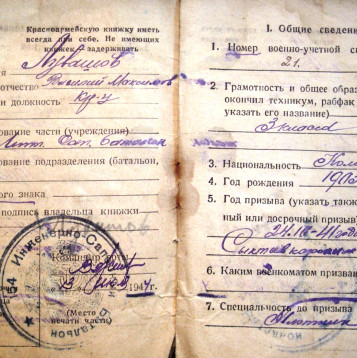 Красноармейскую книжку иметь
всегда при себе. Не имеющих
книжек — задерживать
Лувашов
отчество Василий Максимов
и должность Кр-ц
ование части (учреждения)
Сап. Баталион
ование подразделения (батальон,
ного знака
подпись владельца книжки
Инженерно-Сап
54
Командир роты
194 г.
(Место
печати части)
Батальон
I. Общие сведени
1. Номер военно-учетной с
21.
2. Грамотность и общее образ
окончил техникум, рабфак
указать его название)
3 класса
3. Национальность Коми
4. Год рождения 19
5. Год призыва (указать такж
ный или досрочный призыв
24.
6. Каким военкоматом призван
7. Специальность до призыва
Плотник